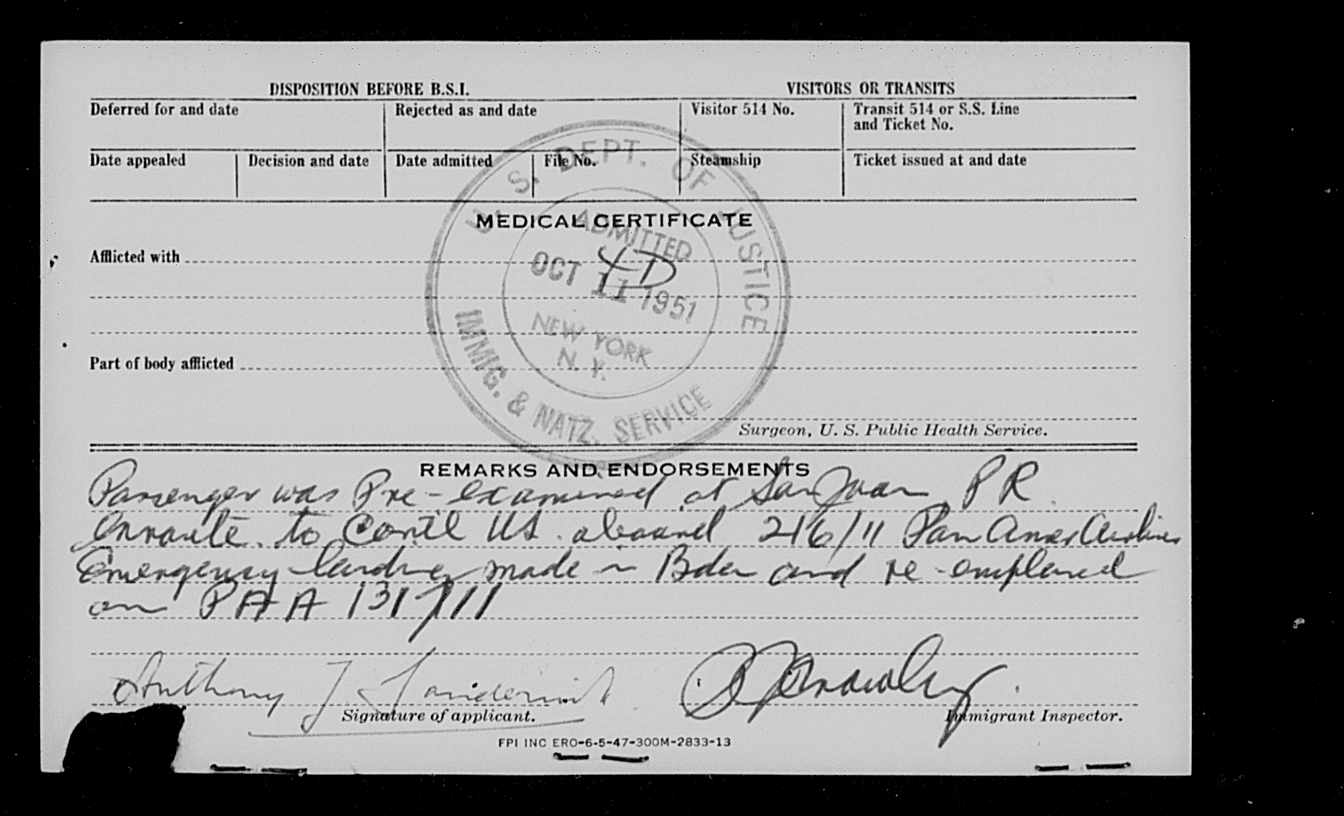 DISPOSITION BEFORE B.S.I.
VISITORS OR TRANSITS
Deferred for and date
Rejected as and date
Visitor 514 No.
Transit 514 or S.S. Line
and Ticket No.
Date appealed
Decision and date
Date admitted
File No.
Steamship
Ticket issued at and date
U. S. DEPT. OF JUSTICE
IMMIG. & NATZ. SERVICE
ADMITTED
OCT 11 1951
NEW YORK
N. Y.
MEDICAL CERTIFICATE
Afflicted with
Part of body afflicted
Surgeon, U. S. Public Health Service.
REMARKS AND ENDORSEMENTS
Passenger was Pre-examined at San Juan PR
enroute to Contl US aboard 216/11 Pan Amer Airlines
Emergency landing made in Bda and re-emplaned
on PAA 131/11
Anthony J
Signature of applicant.
Immigrant Inspector.
FPI INC ERO-6-5-47-300M-2833-13